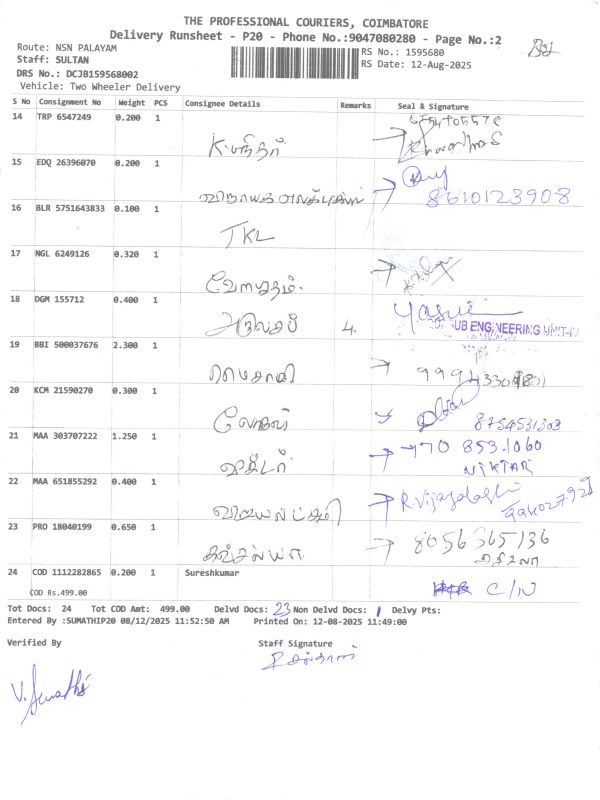 THE PROFESSIONAL COURIERS, COIMBATORE
Delivery Runsheet - P20 - Phone No.:9047080280 - Page No.:2
Route: NSN PALAYAM
RS No.: 1595680
Staff: SULTAN
RS Date: 12-Aug-2025
DRS No.: DCJB159568002
Vehicle: Two Wheeler Delivery
S No Consignment No Weight PCS Consignee Details Remarks Seal & Signature
14 TRP 6547249 0.200 1
15 EDQ 26396070 0.200 1
8610123908
16 BLR 5751643833 0.100 1
TKL
17 NGL 6249126 0.320 1
வேலாயுதம்.
18 DGM 155712 0.400 1
4.
UB ENGINEERING UNIT-IV
19 BBI 500037676 2.300 1
20 KCM 21590270 0.300 1
8754531303
21 MAA 303707222 1.250 1
NIKTAR
22 MAA 651855292 0.400 1
விஜயலட்சுமி R.Vijayalashi
23 PRO 18040199 0.650 1
கவுசல்யா 8056365136
24 COD 1112282865 0.200 1 Sureshkumar
C/N
COD Rs.499.00
Tot Docs: 24 Tot COD Amt: 499.00 Delvd Docs: 23 Non Delvd Docs: 1 Delvy Pts:
Entered By :SUMATHIP20 08/12/2025 11:52:50 AM Printed On: 12-08-2025 11:49:00
Verified By Staff Signature